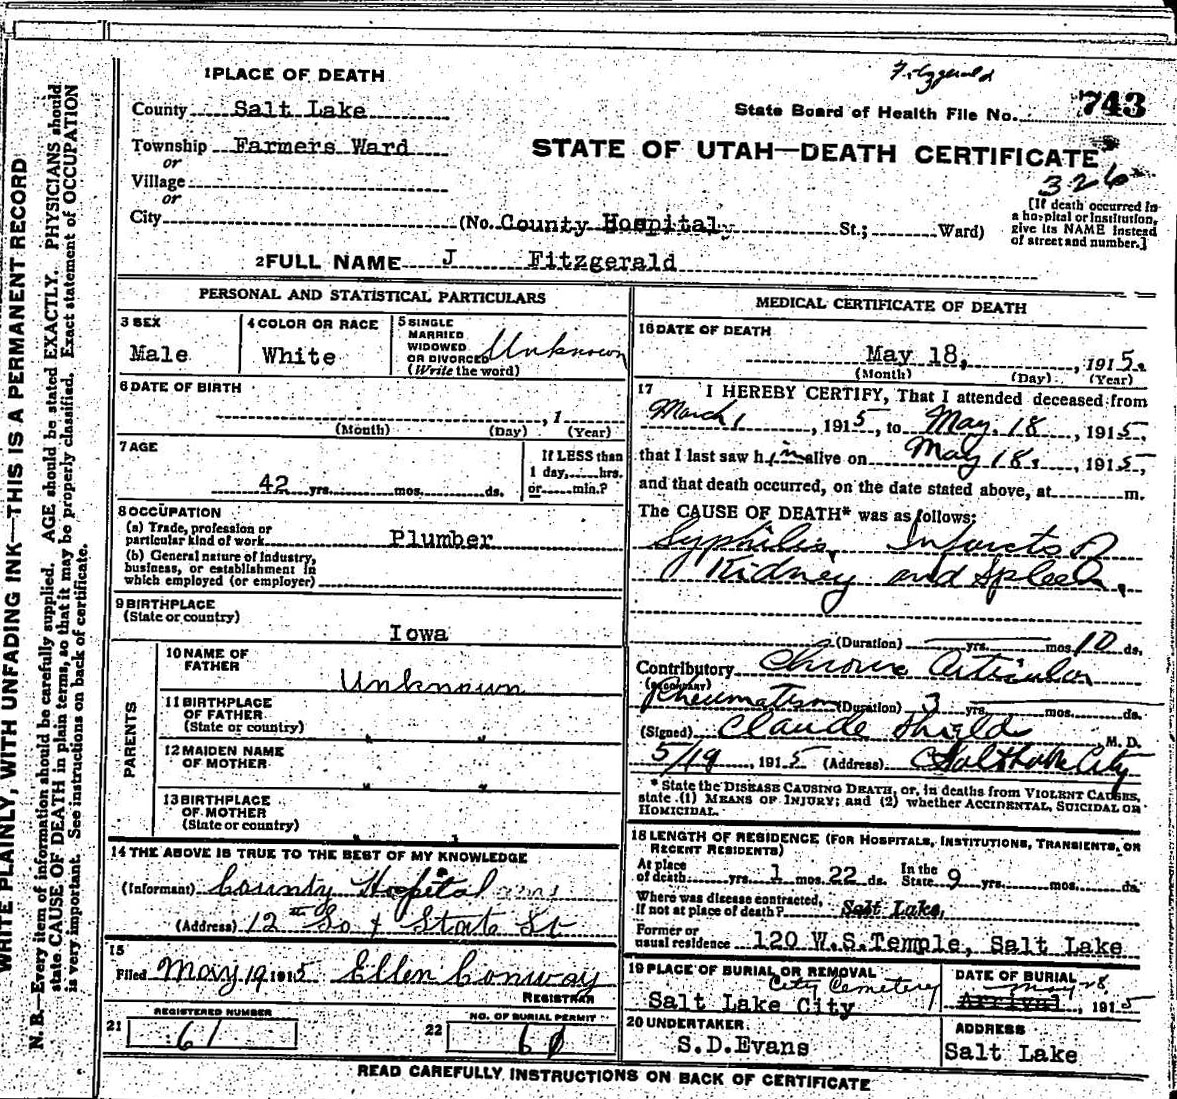 WRITE PLAINLY, WITH UNFADING INK—THIS IS A PERMANENT RECORD
N. B.—Every item of information should be carefully supplied. AGE should be stated EXACTLY. PHYSICIANS should
state CAUSE OF DEATH in plain terms, so that it may be properly classified. Exact statement of OCCUPATION
is very important. See instructions on back of certificate.
Fitzgerald
1 PLACE OF DEATH
County Salt Lake
State Board of Health File No. 743
Township Farmers Ward
or
STATE OF UTAH—DEATH CERTIFICATE
326
Village
or
City (No. County Hospital, St.; Ward)
[If death occurred in
a hospital or institution,
give its NAME instead
of street and number.]
2 FULL NAME J Fitzgerald
PERSONAL AND STATISTICAL PARTICULARS
3 SEX
Male
4 COLOR OR RACE
White
5 SINGLE
MARRIED
WIDOWED
OR DIVORCED Unknown
(Write the word)
6 DATE OF BIRTH
, 1
(Month) (Day) (Year)
7 AGE
42 yrs. mos. ds.
If LESS than
1 day, hrs.
or min.?
8 OCCUPATION
(a) Trade, profession or
particular kind of work Plumber
(b) General nature of Industry,
business, or establishment in
which employed (or employer)
9 BIRTHPLACE
(State or country)
Iowa
PARENTS
10 NAME OF
FATHER
Unknown
11 BIRTHPLACE
OF FATHER
(State or country)
" "
12 MAIDEN NAME
OF MOTHER
13 BIRTHPLACE
OF MOTHER
(State or country)
" "
14 THE ABOVE IS TRUE TO THE BEST OF MY KNOWLEDGE
(Informant) County Hospital
(Address) 12th So & State St
15
Filed May 19 1915 Ellen Conway
REGISTRAR
21 REGISTERED NUMBER
61
22 NO. OF BURIAL PERMIT
60
MEDICAL CERTIFICATE OF DEATH
16 DATE OF DEATH
May 18, , 1915.
(Month) (Day) (Year)
17 I HEREBY CERTIFY, That I attended deceased from
March 1 , 1915, to May. 18 , 1915,
that I last saw him alive on May 18. , 1915,
and that death occurred, on the date stated above, at m.
The CAUSE OF DEATH* was as follows:
Syphilis, Infarcts of
Kidney and Spleen,
(Duration) yrs. mos. 10 ds.
Contributory Chronic Articular
(SECONDARY)
Rheumatism (Duration) 3 yrs. mos. ds.
(Signed) Claude Shields M. D.
5/19 , 1915 (Address) Salt Lake City
* State the DISEASE CAUSING DEATH, or, in deaths from VIOLENT CAUSES,
state (1) MEANS OF INJURY; and (2) whether ACCIDENTAL, SUICIDAL OR
HOMICIDAL.
18 LENGTH OF RESIDENCE (FOR HOSPITALS, INSTITUTIONS, TRANSIENTS, OR
RECENT RESIDENTS)
At place
of death yrs. 1 mos. 22 ds. In the
State 9 yrs. mos. ds.
Where was disease contracted,
if not at place of death? Salt Lake,
Former or
usual residence 120 W.S.Temple, Salt Lake
19 PLACE OF BURIAL OR REMOVAL
City Cemetery
Salt Lake City
DATE OF BURIAL
May 28,
Arrival , 1915
20 UNDERTAKER
S.D.Evans
ADDRESS
Salt Lake
READ CAREFULLY INSTRUCTIONS ON BACK OF CERTIFICATE